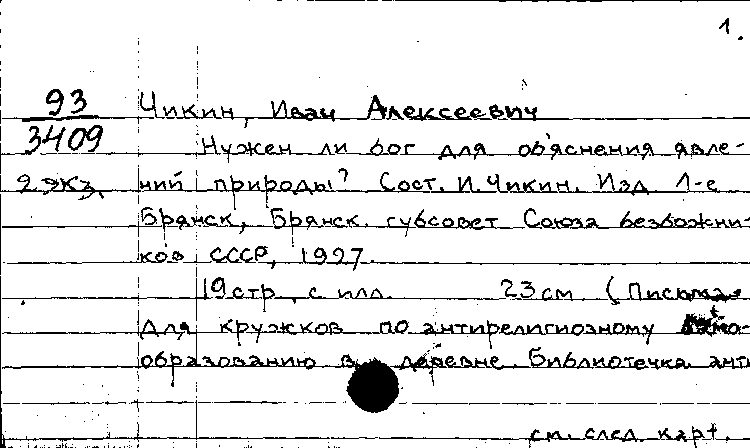 1.
93 Чикин, Иван Алексеевич
3409 Нужен ли бог для об'яснения явле-
2 экз. ний природы? Сост. И. Чикин. Изд 1-е
Брянск, Брянск. губсовет Союза безбожни-
ков СССР, 1927.
19 стр, с илл. 23 см (Письма
для кружков по антирелигиозному само-
образованию в деревне. Библиотечка анти
см. след. карт.